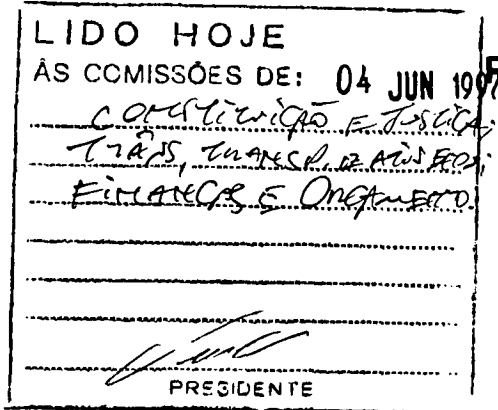 LIDO HOJE
ÀS COMISSÕES DE: 04 JUN 1997
CONSTITUIÇÃO E JUSTIÇA;
TRÂNS, TRANSP, E ATIV ECON;
FINANÇAS E ORÇAMENTO.
PRESIDENTE